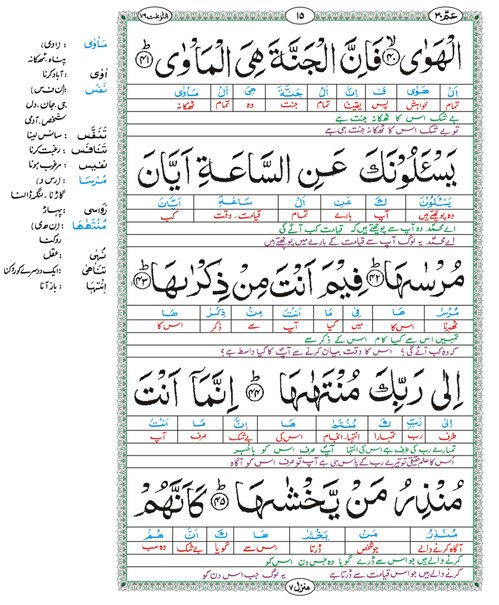 عمّ ۳۰ ۱۵ النّٰزعٰت ۷۹
الْهَوٰى ﴿۴۰﴾ فَاِنَّ الْجَنَّةَ هِیَ الْمَاْوٰی ﴿۴۱﴾
اَلْ هَوٰى فَ اِنَّ اَلْ جَنَّةَ هِیَ اَلْ مَاْوٰی
تمام خواہش پس یقیناً تمام جنت وہ تمام ٹھکانہ
بے شک اس کا ٹھکانہ جنت ہی ہے
تو بے شک اس کا ٹھکانہ جنت ہی ہے
یَسْئَلُوْنَكَ عَنِ السَّاعَةِ اَیَّانَ
یَسْئَلُوْنَ كَ عَنْ اَلْ سَاعَةِ اَیَّانَ
وہ پوچھتے ہیں آپ بارے تمام قیامت۔ وقت کب
اے محمدؐ وہ آپ سے پوچھتے ہیں کہ قیامت کب آئے گی
اے محمدؐ یہ لوگ آپ سے قیامت کے بارے میں پوچھتے ہیں
مُرْسٰىهَا ﴿۴۲﴾ فِیْمَ اَنْتَ مِنْ ذِكْرٰىهَا ﴿۴۳﴾
مُرْسٰ هَا فِیْ مَا اَنْتَ مِنْ ذِكْرٰ هَا
ٹھہرنا اس کا میں کیا آپ سے ذکر اس کا
تمہیں اس سے کیا کام اس کے ذکر سے
کہ وہ کب آئے گی؟ اس کا وقت بیان کرنے سے آپ کا کیا واسطہ ہے؟
اِلٰى رَبِّكَ مُنْتَهٰىهَا ﴿۴۴﴾ اِنَّمَاۤ اَنْتَ
اِلٰى رَبِّ كَ مُنْتَهٰ هَا اِنَّ مَا اَنْتَ
طرف رب تمہارا انتہا۔ انجام اس کی بے شک صرف آپ
تمہارے رب ہی کی طرف ہے اس کی انتہا آپ صرف اس کو باخبر
اُس کا علم حقیقی تو تیرے رب کے پاس ہی ہے آپ تو صرف اس کو آگاہ
مُنْذِرُ مَنْ یَّخْشٰىهَا ﴿۴۵﴾ كَاَنَّهُمْ
مُنْذِرُ مَنْ یَخْشٰ هَا كَ اَنَّ هُمْ
آگاہ کرنے والے جو شخص ڈرتا اس سے گویا بے شک وہ سب
کرنے والے ہیں جو اس سے ڈرے گویا وہ جس دن اس کو
کرنے والے ہیں جو اس قیامت سے ڈرتا ہے یہ لوگ جب اس دن کو
منزل ۷
مَاْوٰی : (ا و ی)
پناہ۔ ٹھکانہ
اٰوٰی : آباد کرنا
نَفْسَ : (ن ف س)
جی۔ جان۔ دل
شخص۔ آدمی
تَنَفَّسَ : سانس لینا
تَنَافَسَ : رغبت کرنا
نَفِیْس : مرغوب ہونا
مُرْسَا : (ر س و)
گاڑنا۔ لنگر ڈالنا
رَوَاسِی : پہاڑ
مُنْتَهٰهَا : (ن ھ ی)
روکنا
نُہٰی : عقل
تَنَاهٰی : ایک دوسرے کو روکنا
اِنْتَہَا : باز آنا